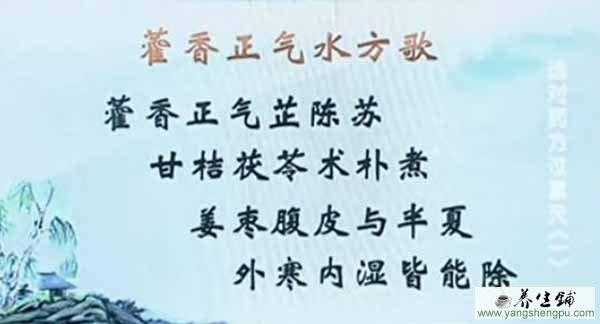 藿香正气水方歌
藿香正气芷陈苏
甘桔茯苓术朴煮
姜枣腹皮与半夏
外寒内湿皆能除
养生铺
www.yangshengpu.com